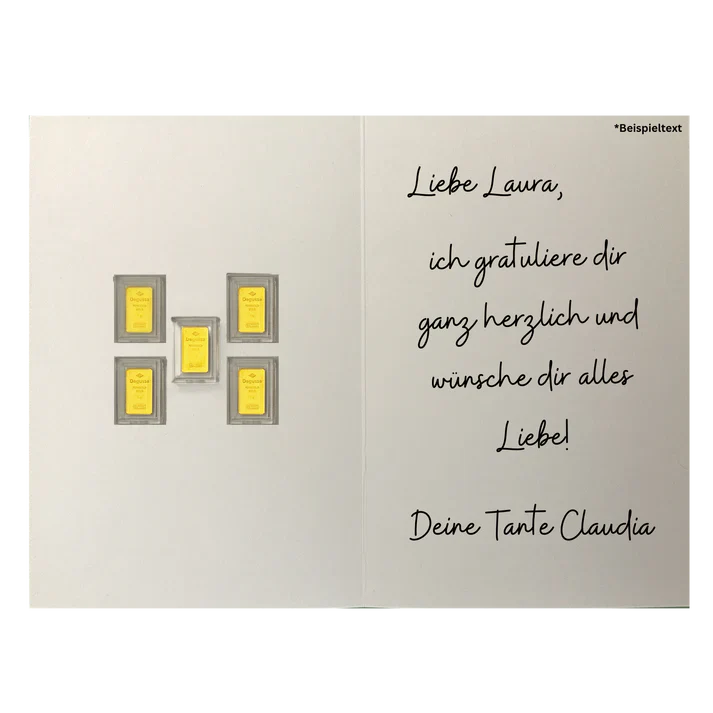 *Beispieltext
Liebe Laura,
ich gratuliere dir
ganz herzlich und
wünsche dir alles
Liebe!
Deine Tante Claudia
Degussa
Degussa
Degussa
Degussa
Degussa